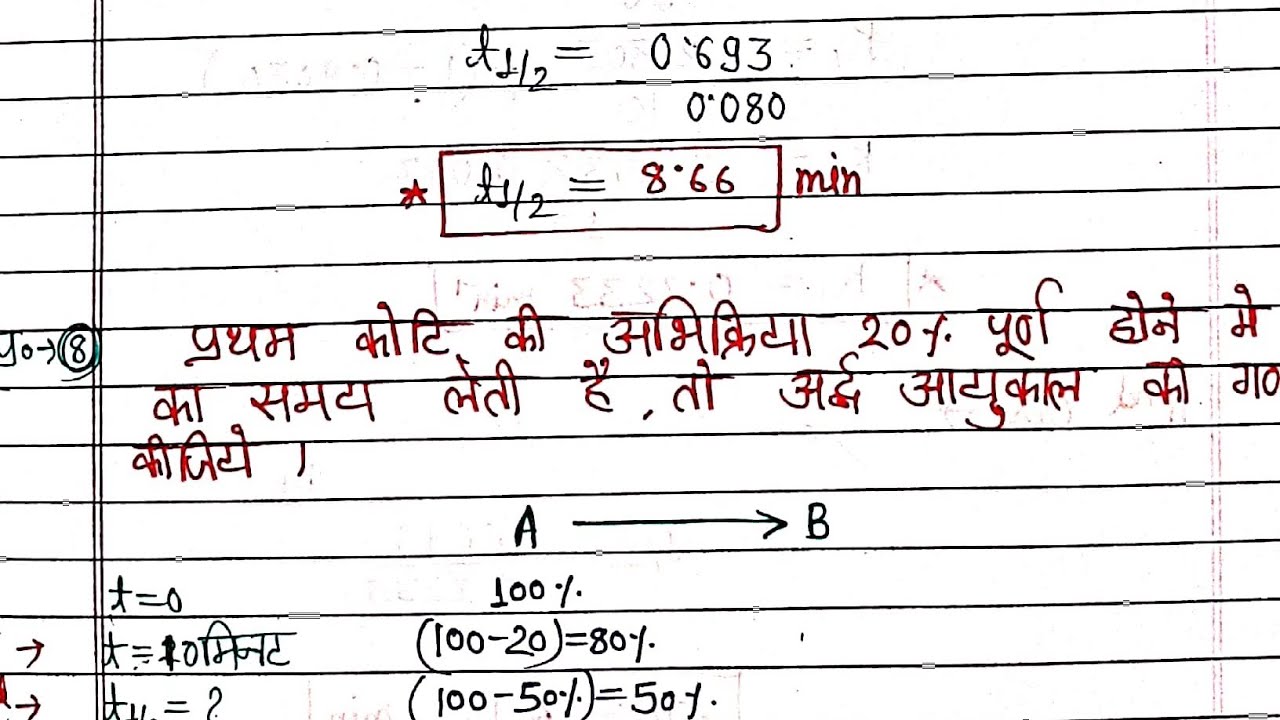 t1/2 = 0.693
0.080
* t1/2 = 8.66 min
प्र०→(8) प्रथम कोटि की अभिक्रिया 20% पूर्ण होने मे
का समय लेती है, तो अर्द्ध आयुकाल की गण
कीजिये ।
A → B
t=0 100%
→ t=10मिनट (100-20)=80%
→ t1/2 = ? (100-50%)=50%.